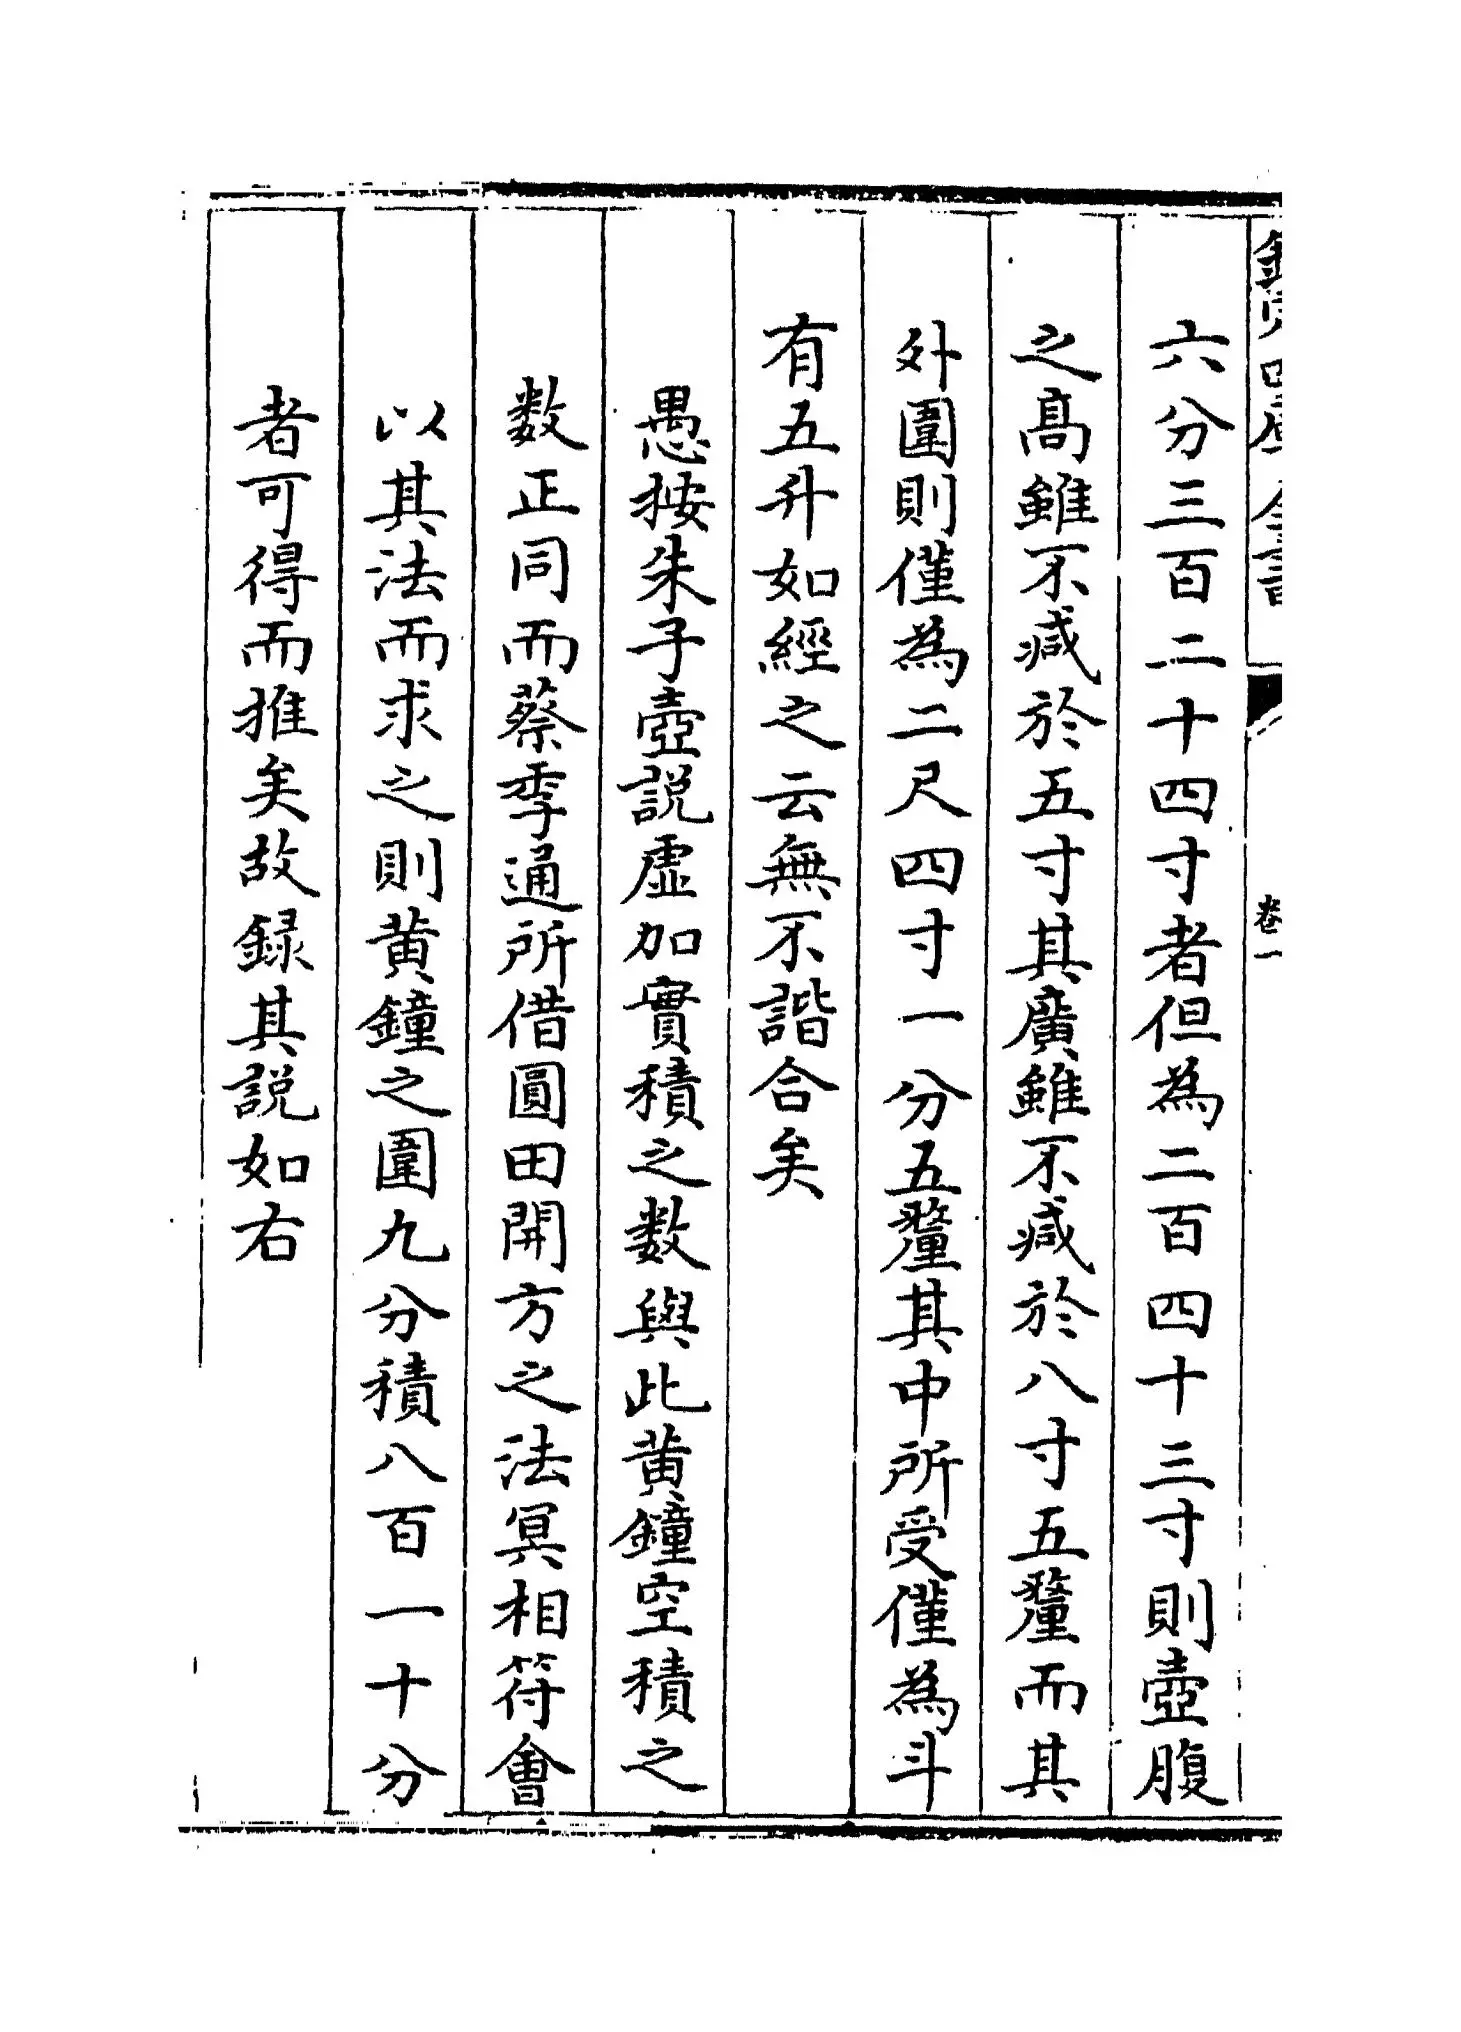 欽定四庫全書
卷一
六分三百二十四寸者但為二百四十三寸則壺腹
之髙雖不减於五寸其廣雖不减於八寸五釐而其
外圍則僅為二尺四寸一分五釐其中所受僅為斗
有五升如經之云無不諧合矣
愚按朱子壺說虚加實積之數與此黄鐘空積之
數正同而蔡季通所借圓田開方之法冥相符會
以其法而求之則黄鐘之圍九分積八百一十分
者可得而推矣故録其說如右